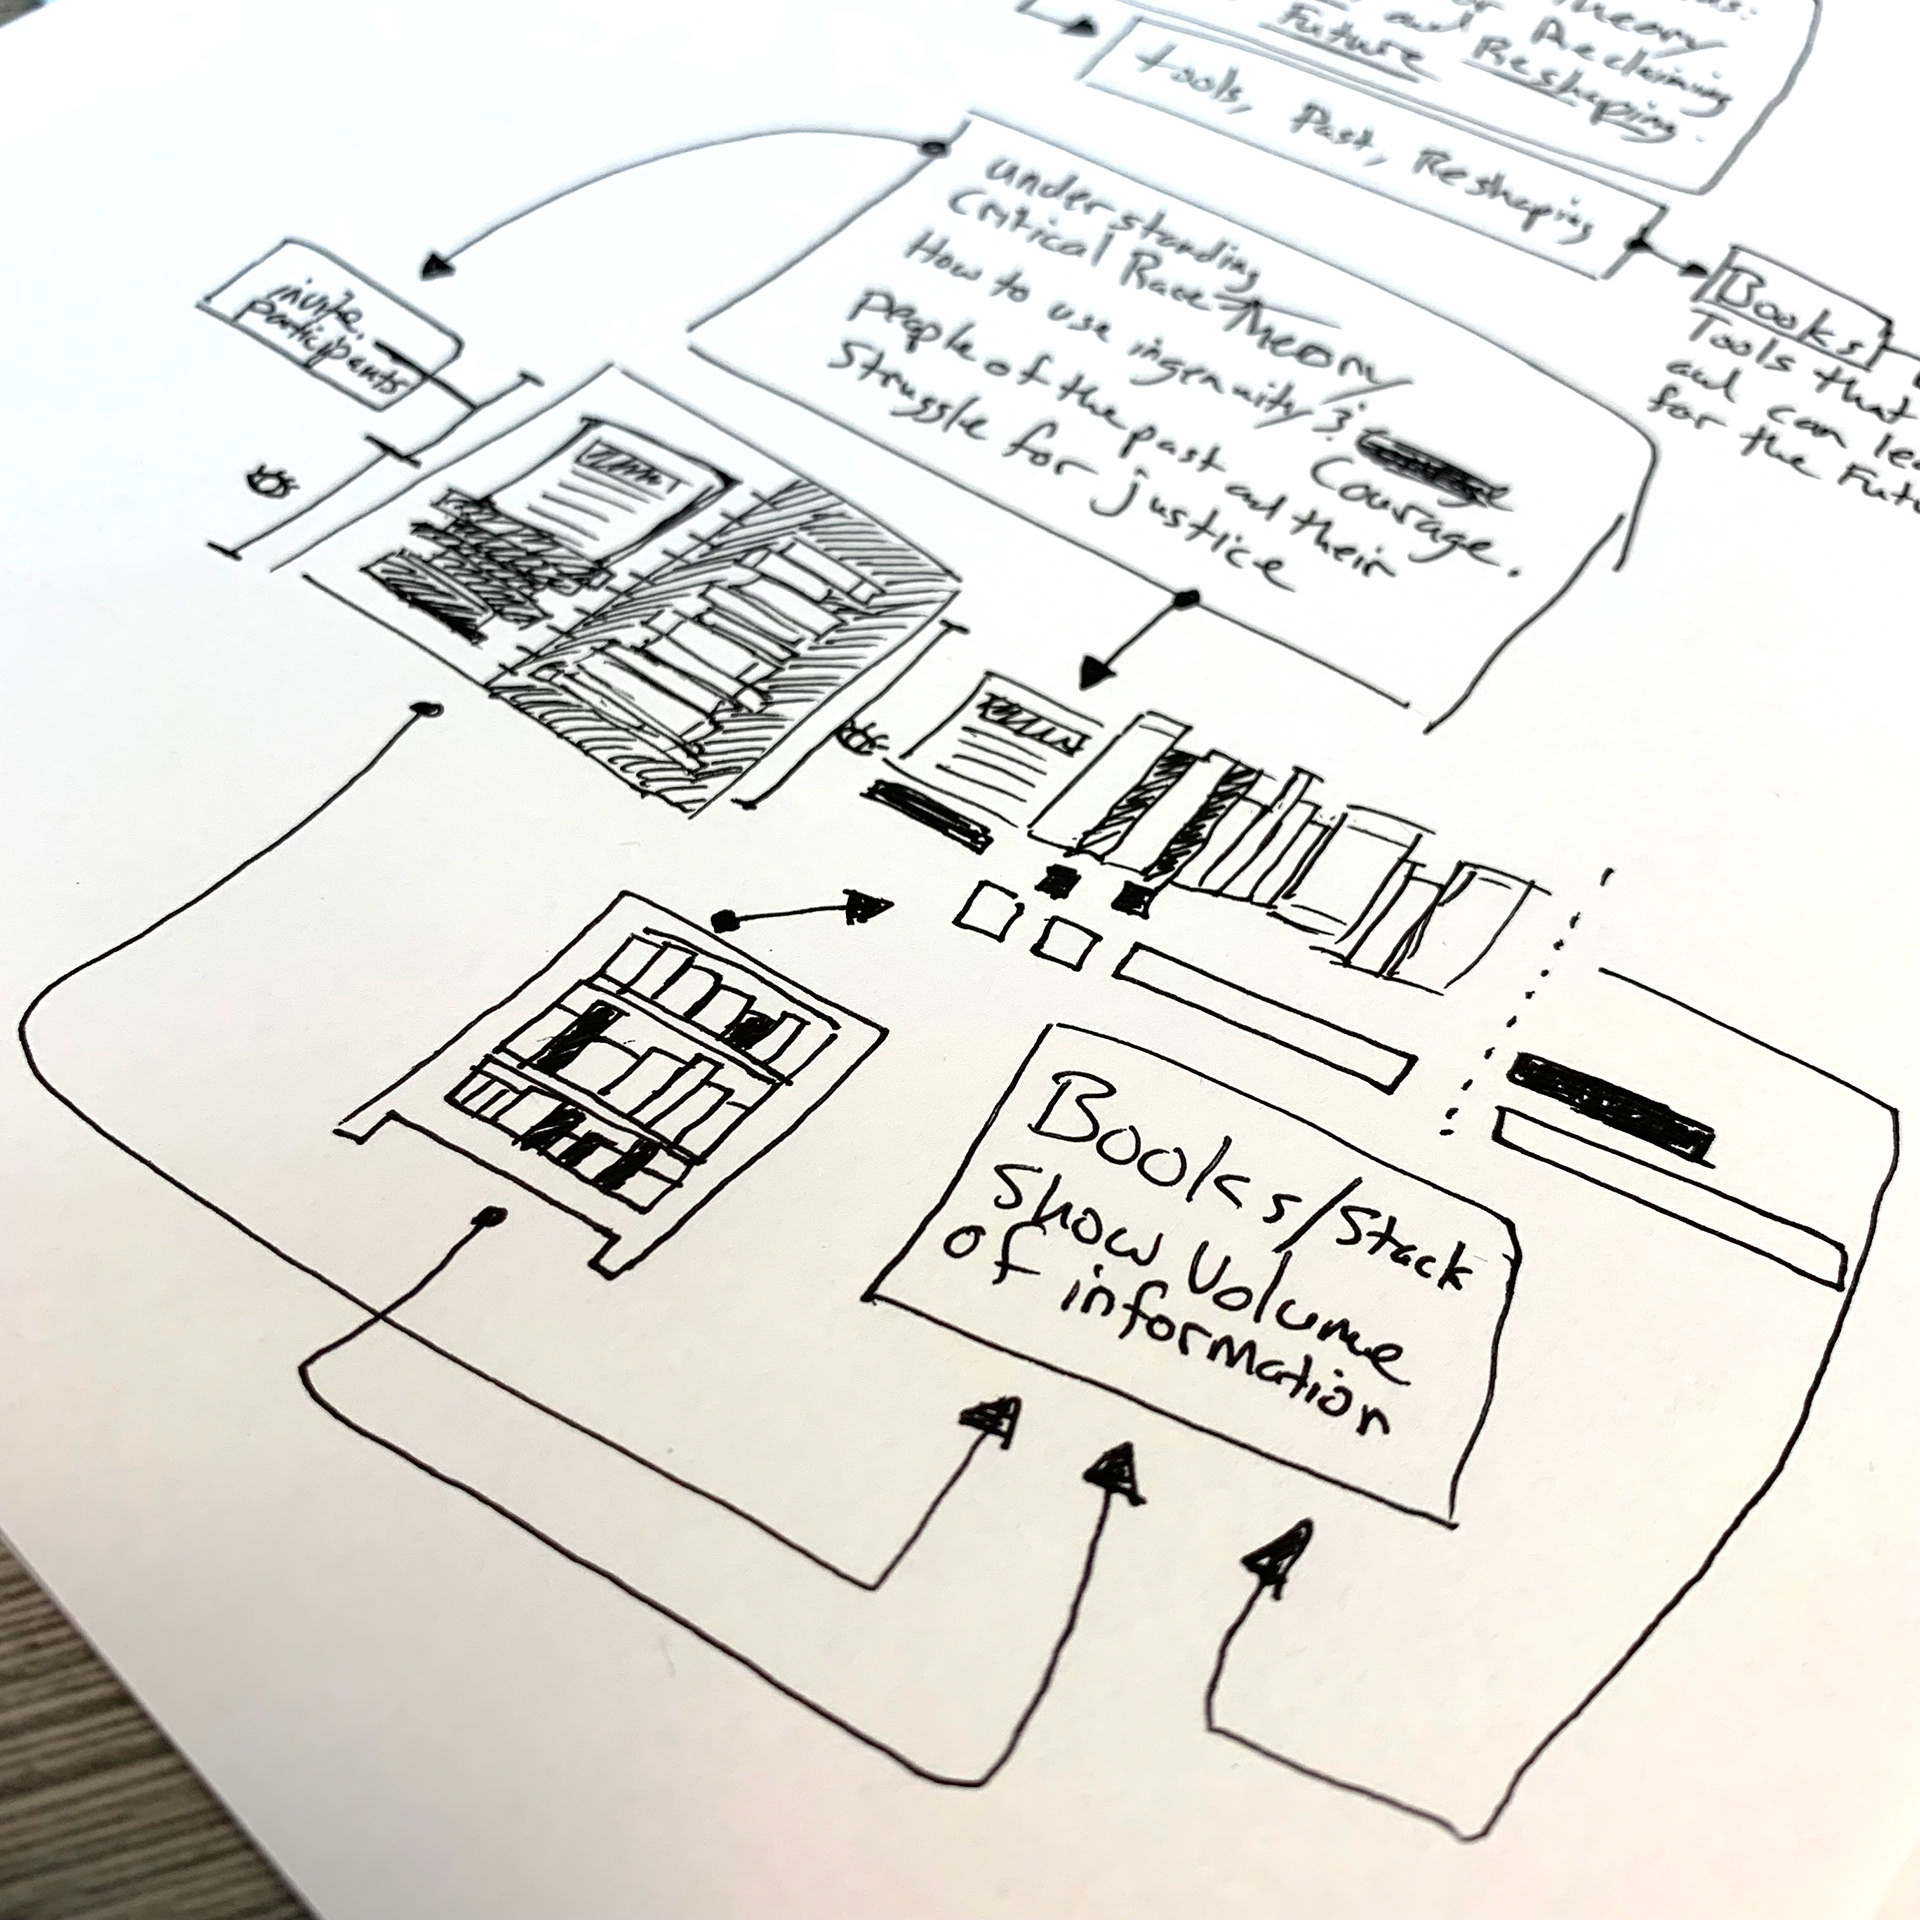 Theory
and Reclaiming
Future Reshaping.
tools, Past, Reshaping
understanding
Critical Race Theory
How to use ingenuity &
Courage.
people of the past and their
Struggle for justice
Books
Tools that
and can
for the
invite
participants
Books/Stack
Show Volume
of information